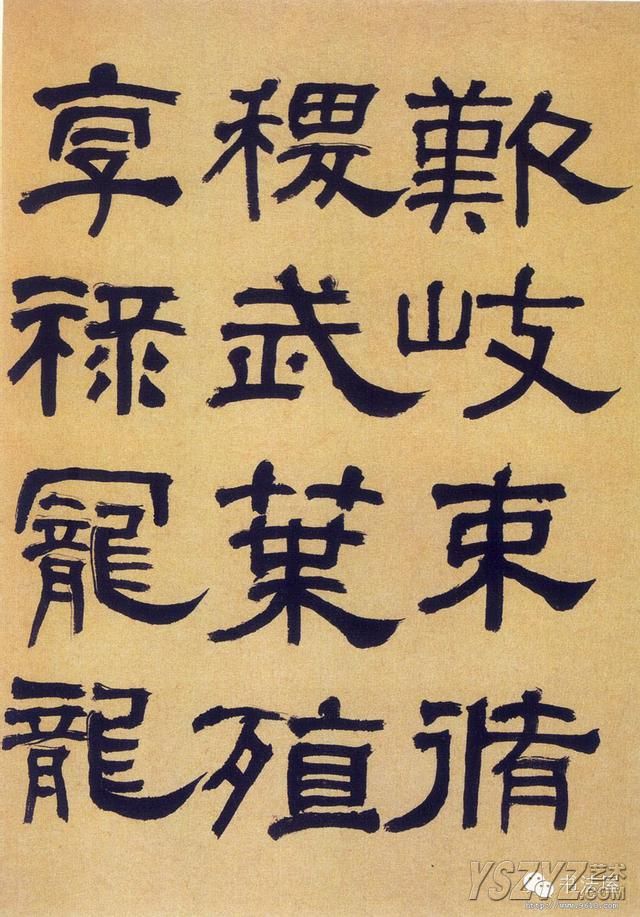 歎岐束脩
稷武葉殖
享祿寵龍
YSZYZ艺术
书法屋
http://www.9610.com